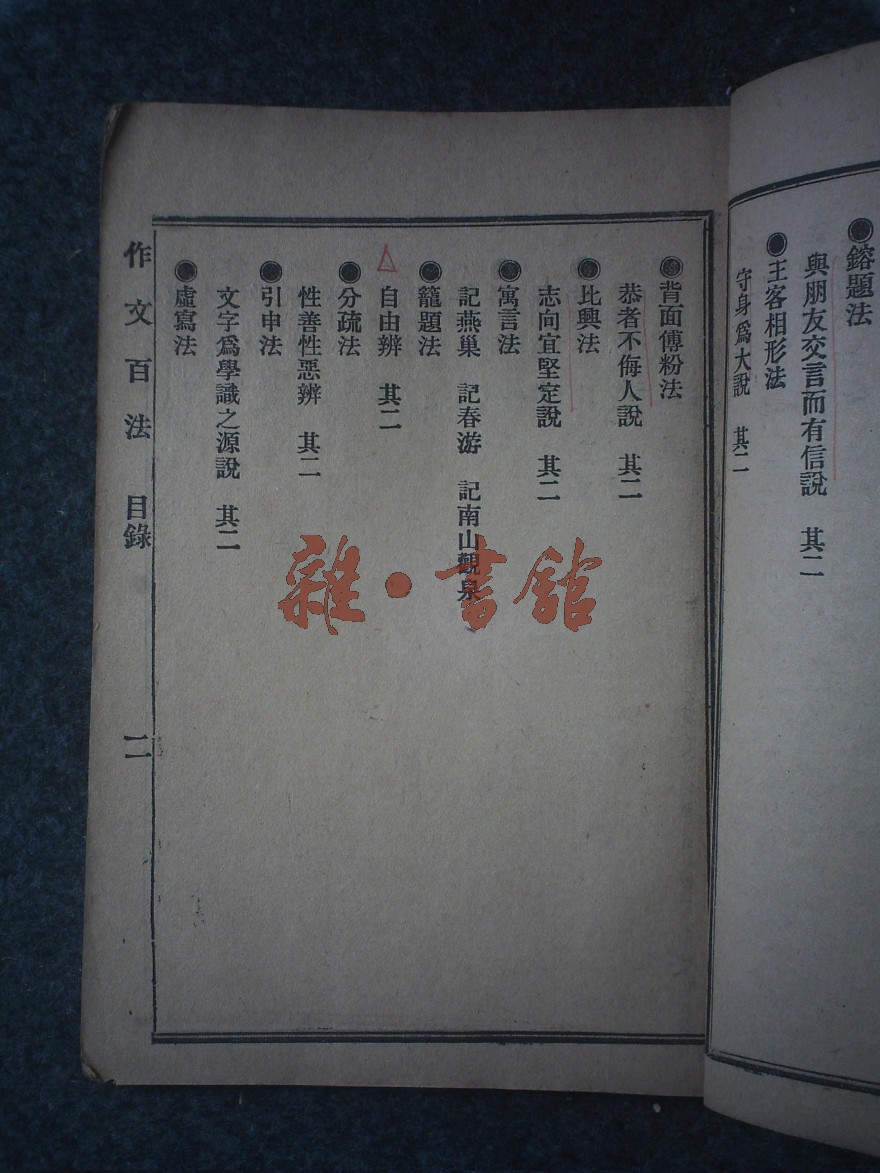 ●鎔題法
與朋友交言而有信說　其二
●主客相形法
守身爲大說　其二
●背面傅粉法
恭者不侮人說　其二
●比興法
志向宜堅定說　其二
●寓言法
記燕巢　記春游　記南山觀泉
●籠題法
自由辨　其二
●分疏法
性善性惡辨　其二
●引申法
文字爲學識之源說　其二
●虛寫法
作文百法　目錄　二
雜·書館